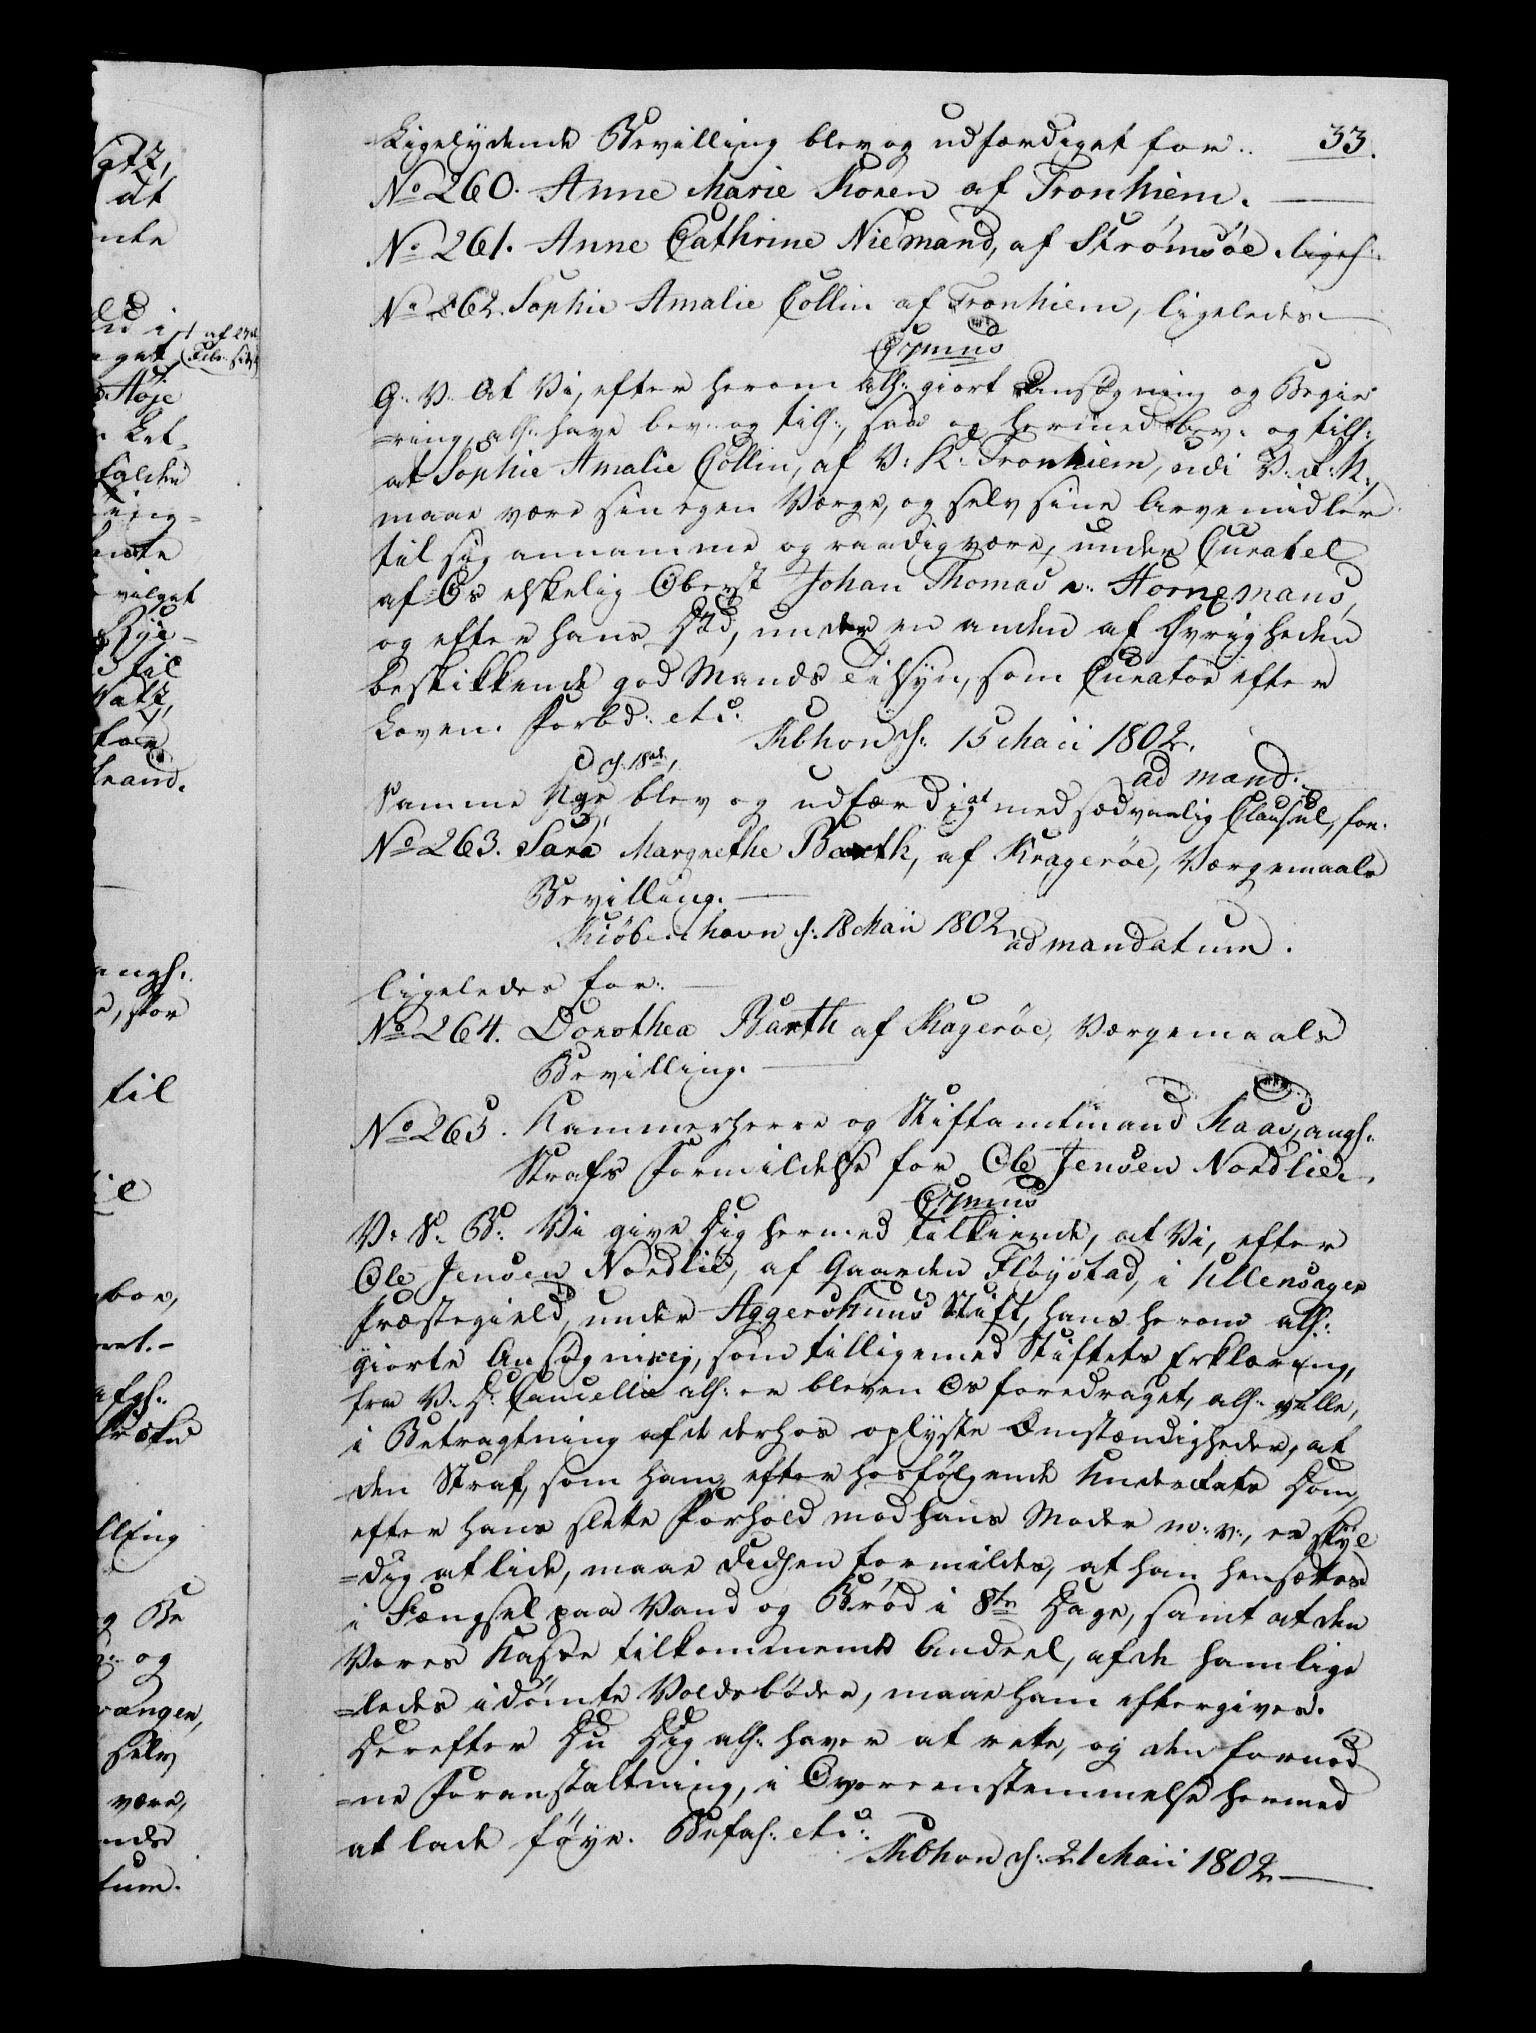 33.
Ligelydende Bevilling blev og udfærdiget for..
No 260. Anne Marie Koren af Tronhiem.
No 261. Anne Cathrine Niemand, af Strømsöe. ligel:
No 262. Sophie Amalie Collin af Tronhiem, ligeledes
G. V. At Vi, efter herom allh: giort Ansögning og Begie
=ring, allh: have bev: og tilh:, saa og hermed bev: og tilh:,
at Sophie Amalie Collin, af V: K: Tronhiem, udi V. R. N.,
maae være sin egen Værge, og selv sine Arvemidler
til sig annamme og raadig være, under Curatel
af Os elskelig Oberst Johan Thomas v: Hornemans,
og efter hans Död, under en anden af Øvrigheden
beskikkende god Mands Tilsyn, som Curator efter
Loven. Forbd: etc.
Kbhvn d: 15 Maii 1802.
ad mand.
d. 18de,
Samme Dge, blev og udfærdiget med sædvanlig Clausul, for.
No 263. Sara Margrethe Barth, af Kragerøe, Værgemaals
Bevilling.
Kiöbenhavn d: 18 Maii 1802
ad mandatum.
ligeledes for:
No 264. Dorothea Barth af Kragerøe, Værgemaals
Bevilling.
No 265. Kammerherre og Stiftamtmand Kaas, angl:
Strafs Formildelse for Ole Jensen Nordlie.
V. S. B: Vi give Dig hermed tilkiende, at Vi, efter
Ole Jensen Nordlie, af Gaarden Fløystad, i Ullensager
Præstegield, under Aggershuus Stift, hans herom allh:
giorte Ansögning, som tilligemed Stiftets Erklæring,
fra V. D. Cancellie allh: er bleven Os foredraget, allh: ville,
i Betragtning af de derhos oplyste Omstændigheder, at
den Straf, som ham efter hosfölgende Underrets Dom,
efter hans slette Forhold mod hans Moder m: v:, er skyl
=dig at lide, maae didhen formildes, at han hensættes
i Fængsel paa Vand og Bröd i 8te Dage, samt at den
Vores Kasse tilkommende Andeel, af de ham lige
=ledes idömte Voldsböder, maae ham eftergives.
Derefter Du Dig allh: haver at rette, og den fornöd
=ne Foranstaltning, i Overeensstemmelse hermed
at lade föye. Befal: etc:
Kbhvn d: 21 Maii 1802